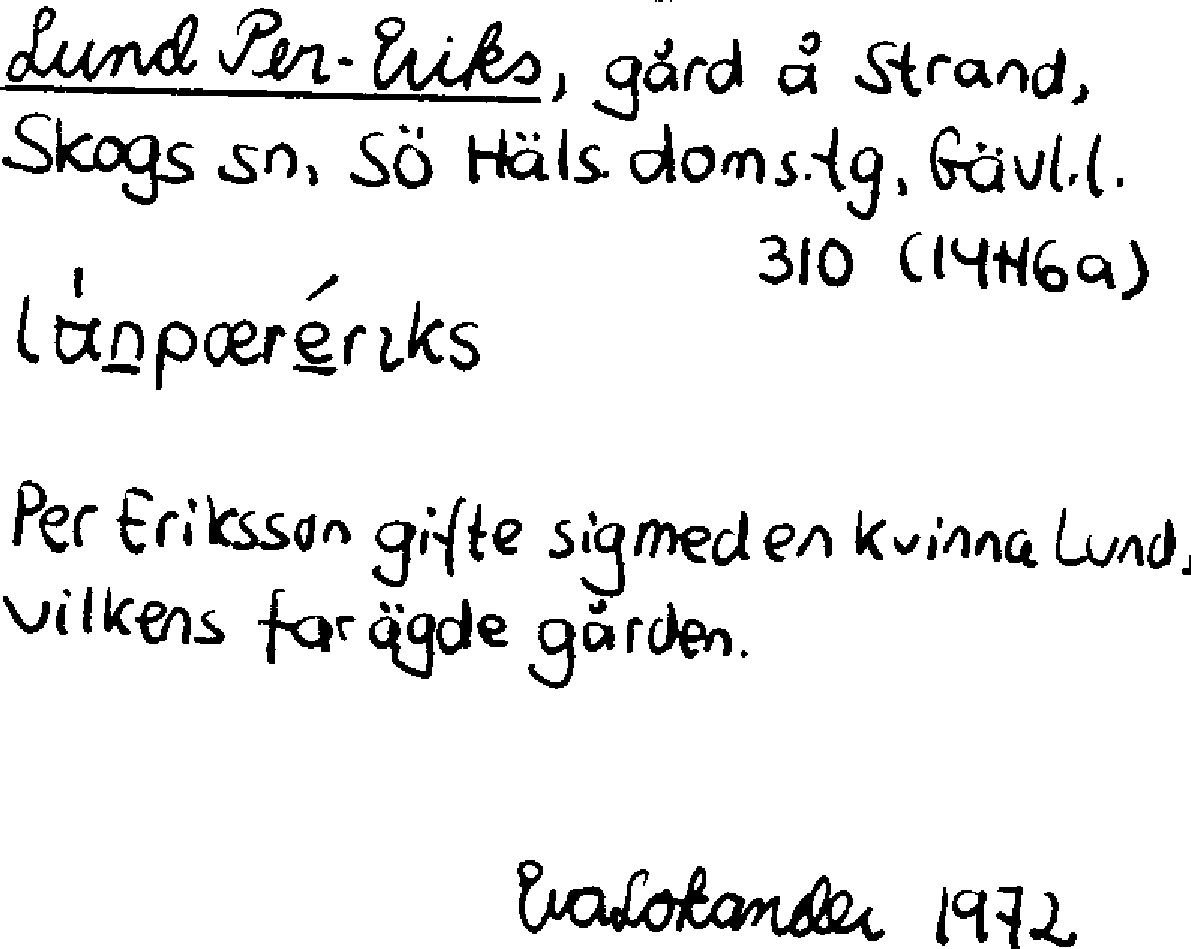 Lund Per-Eriks, gård å Strand,
Skogs sn, Sö Häls. doms.tg, Gävl.l.
310 (14H6a)
Per Eriksson gifte sig med en kvinna Lund,
vilkens far ägde gården.
Eva Lokander 1972